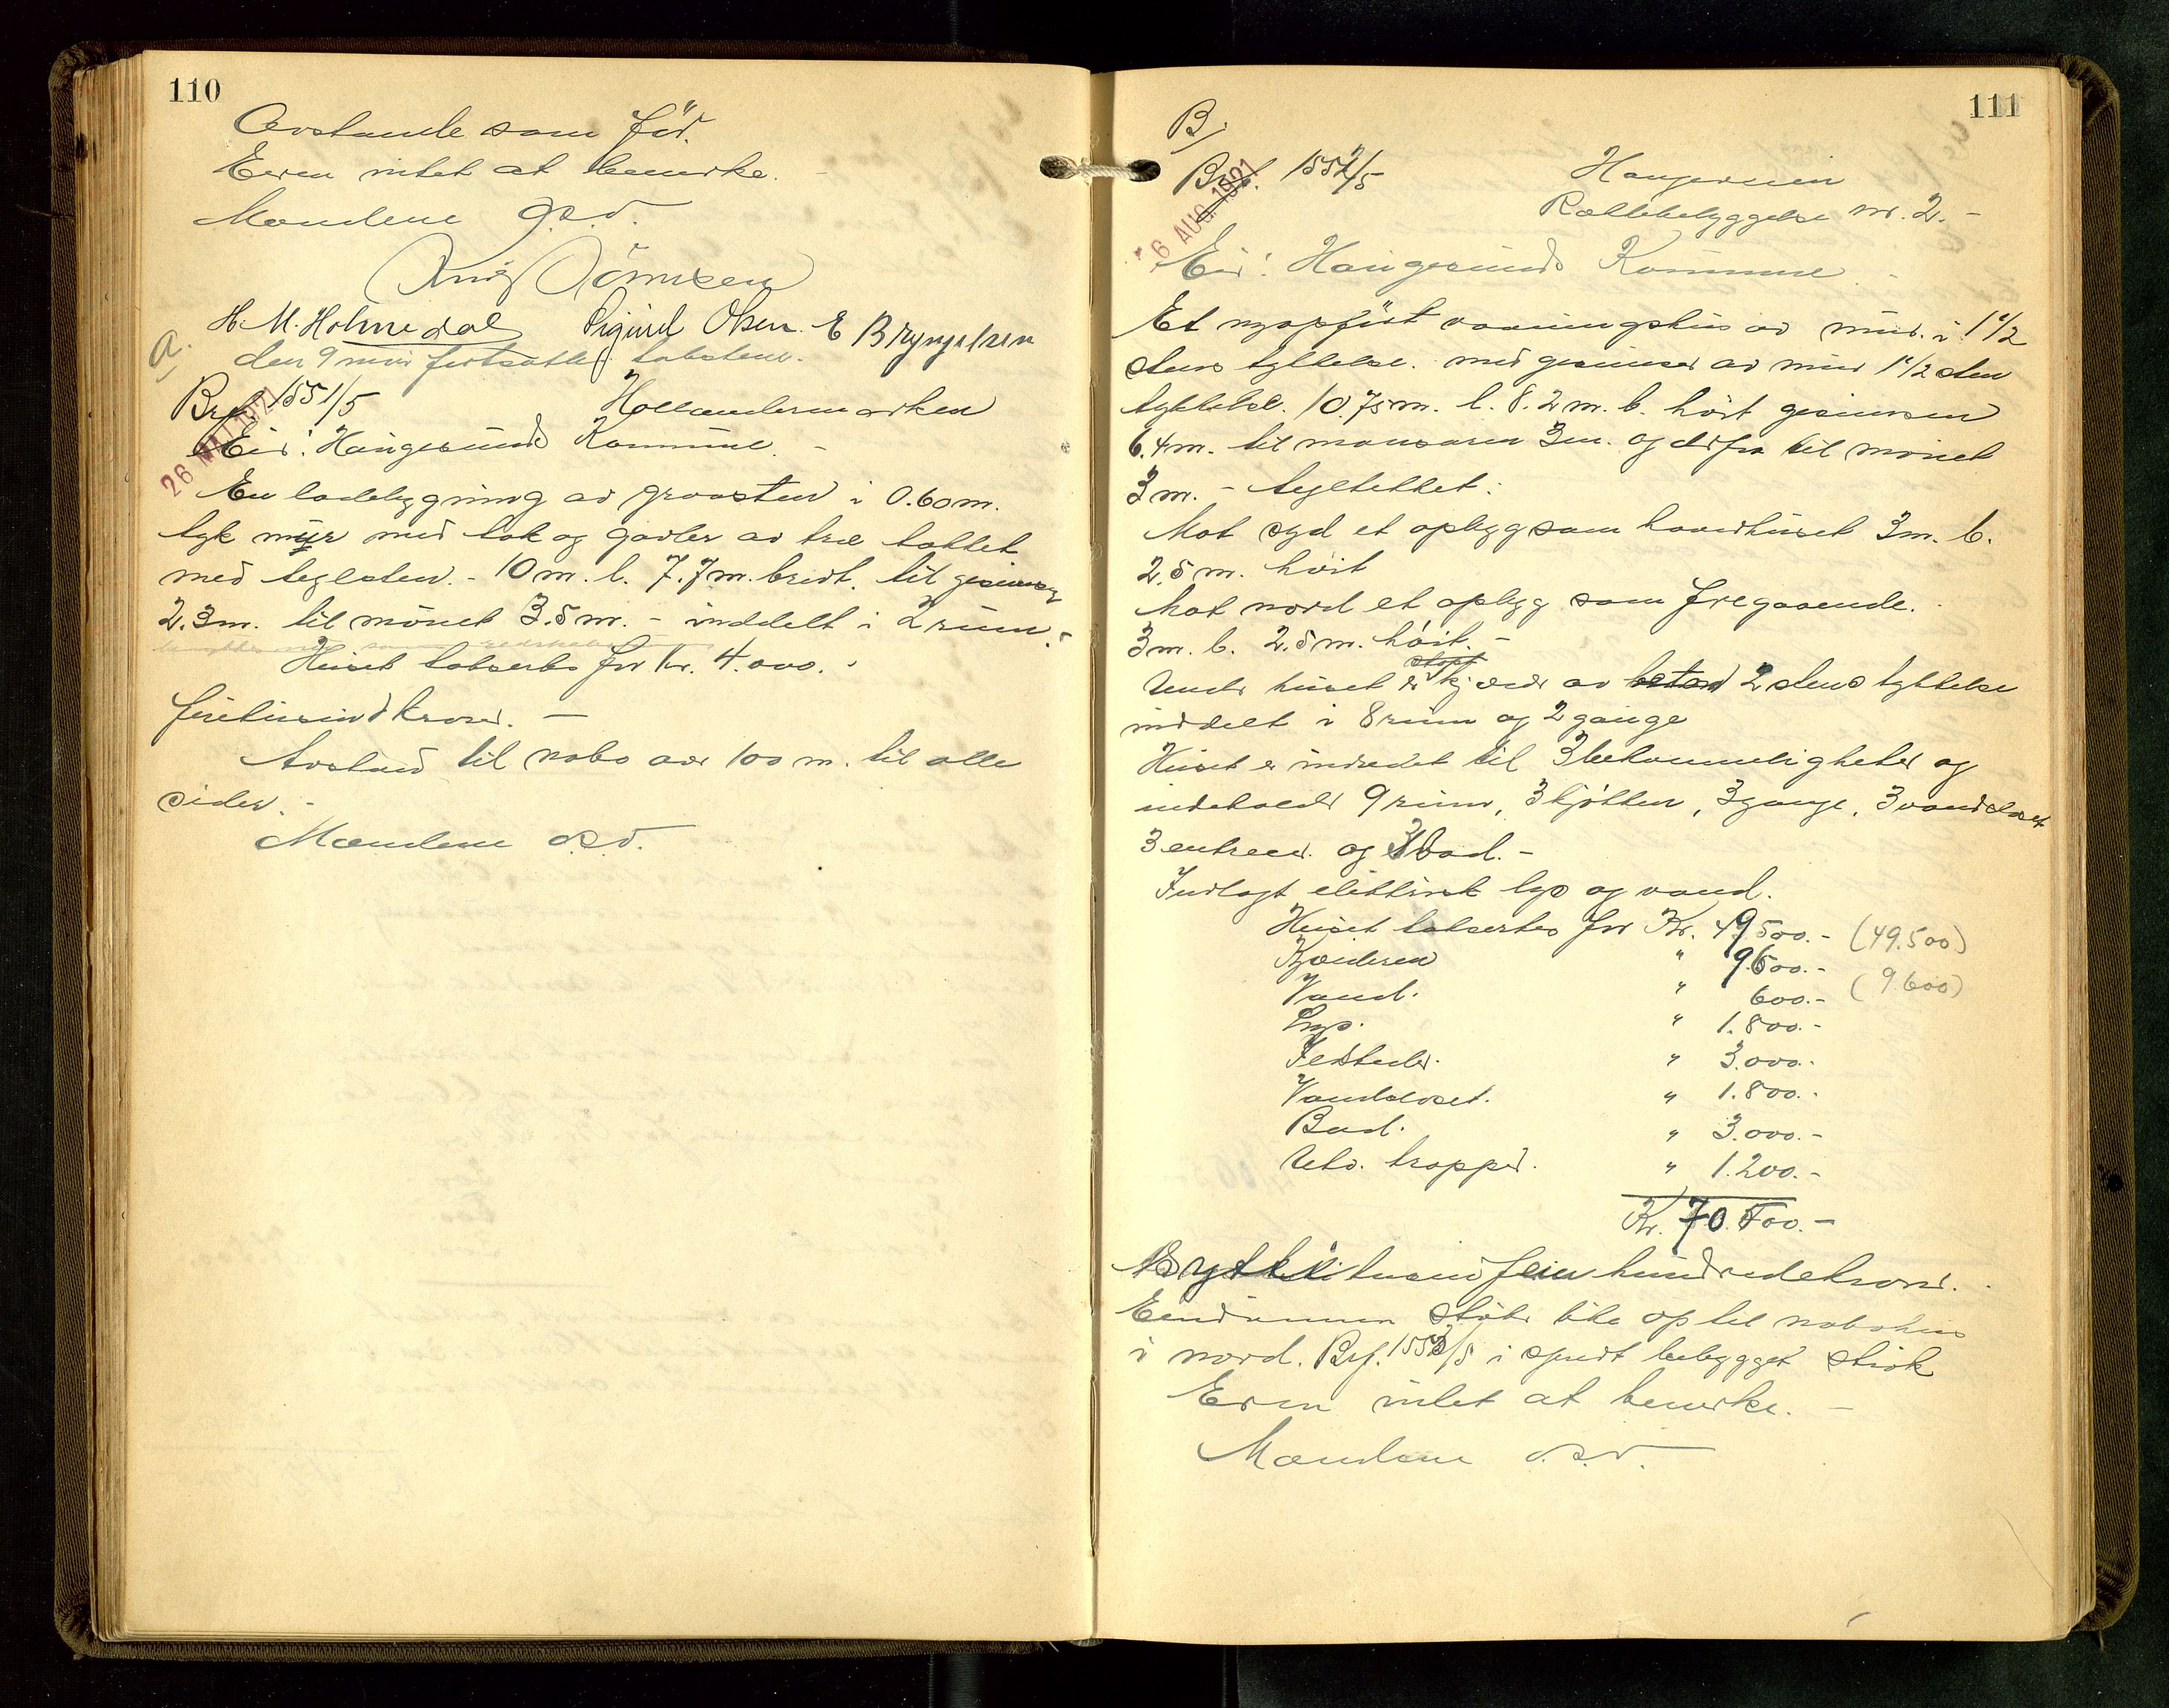 110
Avstande som før.
Ellers intet at bemerke. -
Mændene o.s.v.
H. M. Holmedal Sigurd Olsen. E Bryngelsen
a.
den 9 mai fortsattes taksterne.
Brf. 1551/5 Hollendermarken
26 MAI 1921
Eier: Haugesunds Kommune. -
En ladebygning av graasten i 0.60 m.
tyk mur med tak og gavler av træ tækket
med teglsten. - 10 m. l. 7.7 m. bredt. til gesimsen
2.3 m. til mønet 3.5 m. - inddelt i 2 rum. -
Huset takseres for Kr. 4.000. -
firetusind kroner. -
Avstand til nabo over 100 m. til alle
sider. -
Mændene o.s.v.
111
B,
Brf. 1552/5 Haugesund
Rækkebebyggelse nr. 2. -
6 AUG. 1921
Eier: Haugesunds Kommune -
Et nyopført vaaningshus av mur i 1 1/2
stens tykkelse. med gesimser av mur 1 1/2 sten
tykkelse. 10.75 m. l. 8.2 m. b. høit gesimsen
6.4 m. til mansarden 3 m. og derfra til mønet
3 m. - tegltækket.
Mot syd et opbygg som hovedhuset 3 m. b.
2.5 m. høit
Mot nord et opbygg som foregaaende.
3 m. b. 2.5 m. høit. -
Under huset er støpt kjelder av beton 2 stens tykkelse
inddelt i 8 rum og 2 gange
Huset er indredet til 3 bekvemmeligheter og
indeholder 9 rum, 3 kjøkken, 3 gange, 3 vandcloset
3 entreer. og 3 bad. -
Indlagt elektrisk lys og vand.
Huset takseres for Kr. 49.500. - (49.500)
Kjælderen " 9.600. - (9.600)
Vand. " 600. -
Lys. " 1.800. -
Ildsteder. " 3.000. -
Vandcloset. " 1.800. -
Bad. " 3.000. -
Utv. trapper. " 1.200. -
Kr. 70.500. -
Sytti tusind fem hundrede kroner.
Eiendommen støter like op til nabohus
i nord. Brf. 1553/5 i spredt bebygget strøk
Ellers intet at bemerke. -
Mændene o.s.v.